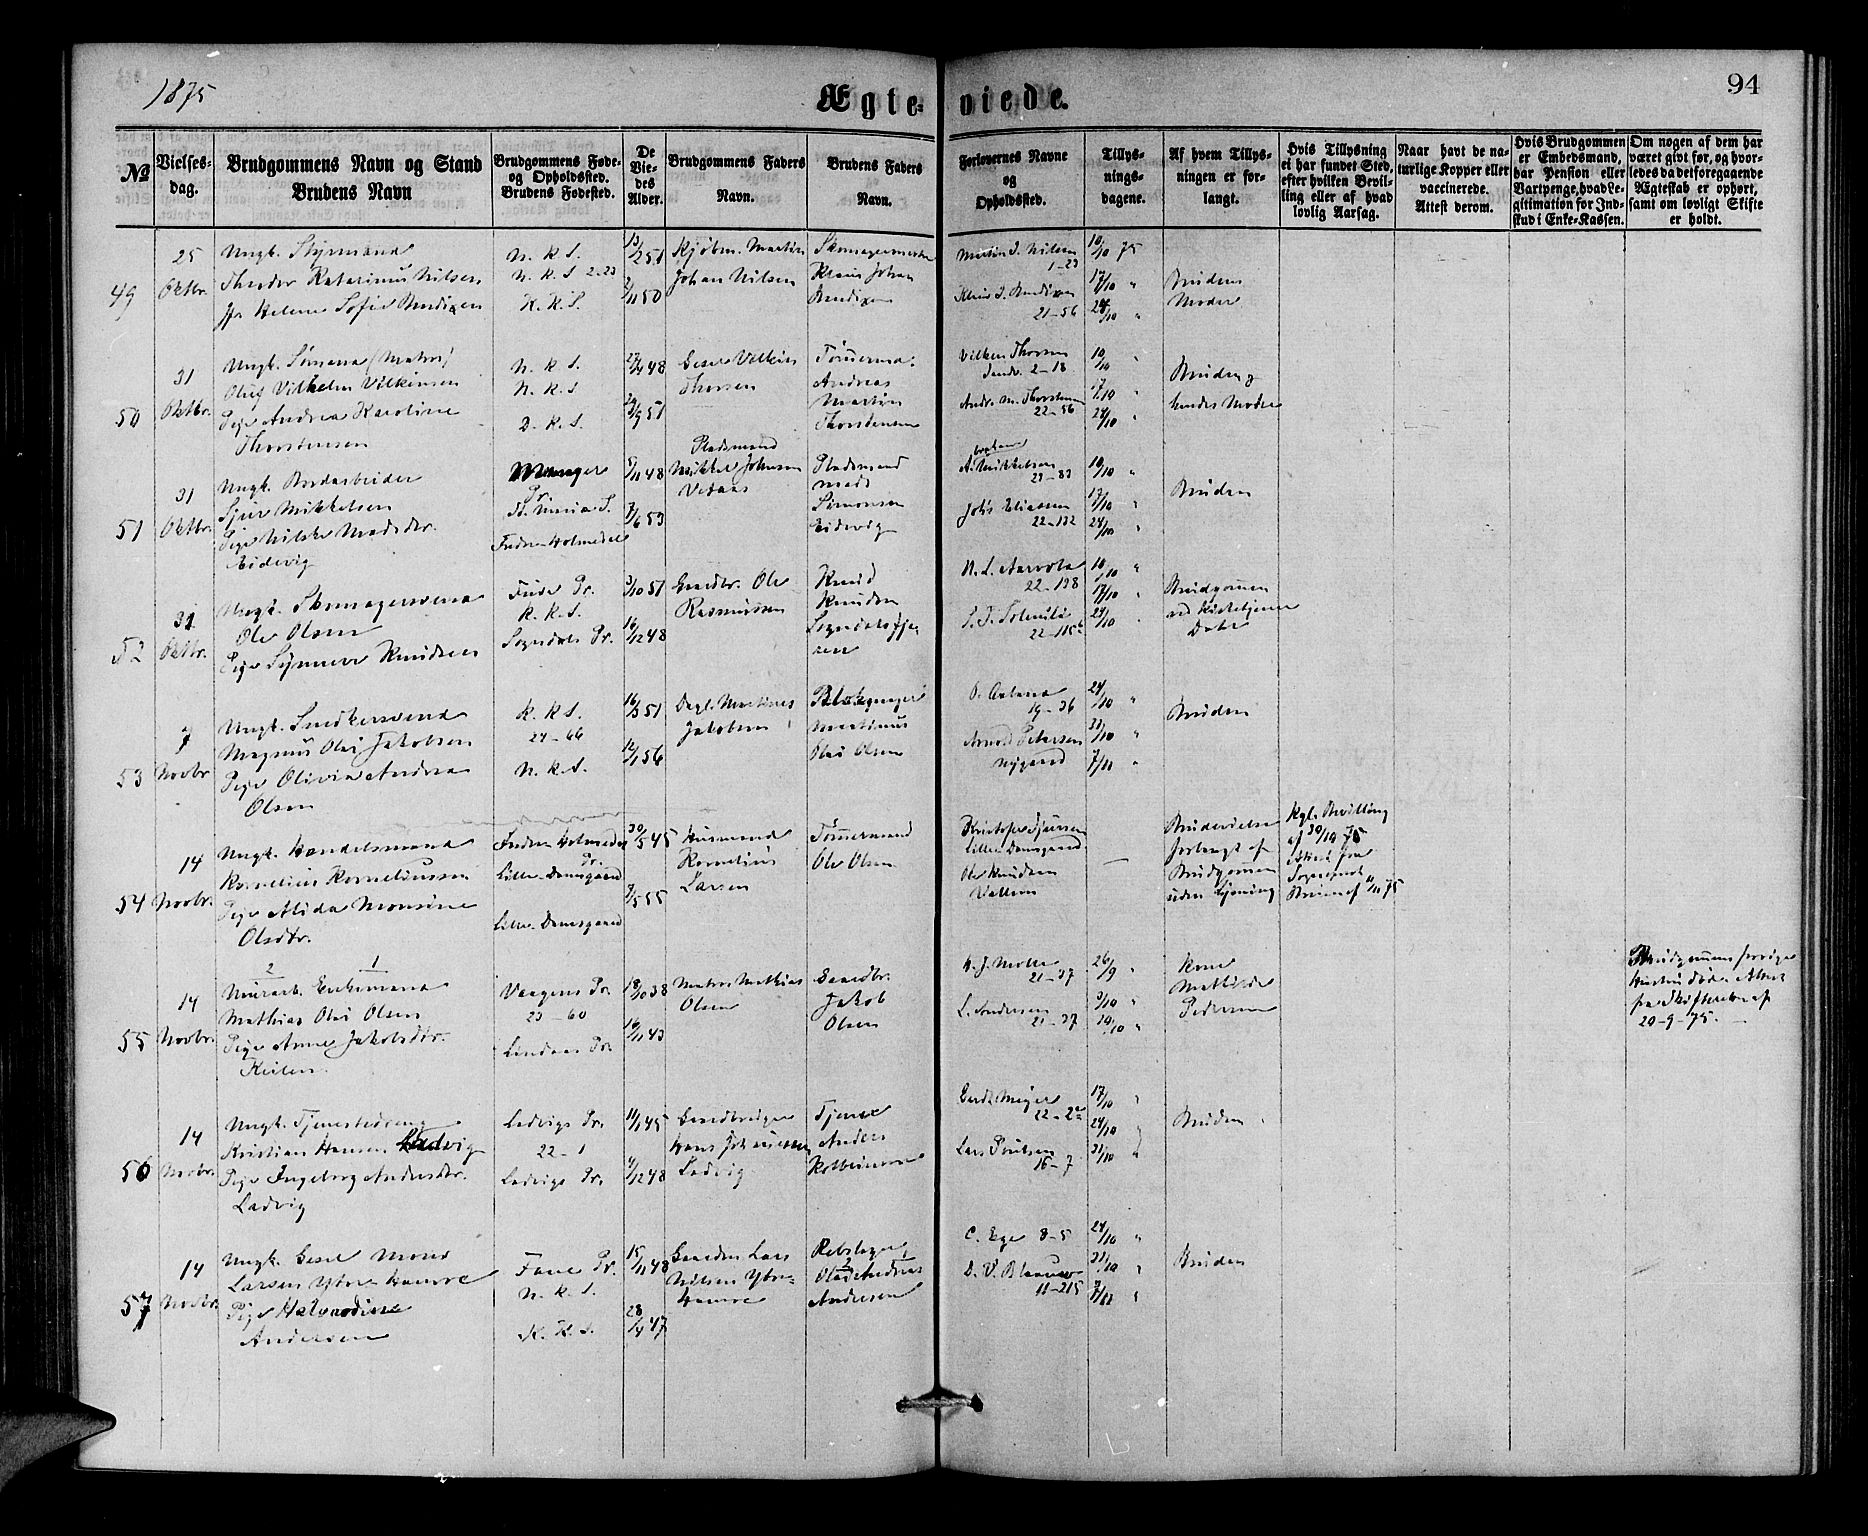 1875
Ægteviede.
94
№
Vielses-
dag.
Brudgommens Navn og Stand
Brudens Navn
Brudgommens Føde-
og Opholdssted.
Brudens Fødested.
De
Vie-
des
Alder.
Brudgommens Faders
Navn.
Brudens Faders
Navn.
Forlovernes Navne
og
Opholdsted.
Tillys-
nings-
dagene.
Af hvem Tillys-
ningen er for-
langt.
Hvis Tillysning
ei har fundet Sted,
efter hvilken Bevil-
ling eller af hvad
lovlig Aarsag.
Naar havt de na-
turlige Kopper eller
vaccinerede.
Attest derom.
Hvis Brudgommen
er Embedsmand,
har Pension eller
Vartpenge, hvad Le-
gitimation for Ind-
skud i Enke-Kassen.
Om nogen af dem har
været gift før, og hvor-
ledes da det foregaaende
Ægteskab er ophørt,
samt om lovligt Skifte
er holdt.
49
25
Oktbr.
Ungk. Styrmand
Theodor Katarinus Nilsen
Jfr Helene Sofie Bendixen
N. k. S.
N. k. S 2-23
K. K. S.
13/2 51
2/11 50
Kjøbm. Martin
Johan Nilsen
Skomagermester
Klaus Johan
Bendixen
Martin J. Nilsen
1-23
Klaus J. Bendixen
21-56
10/10 75
17/10 "
24/10 "
Brudens
Moder
50
31
Oktbr.
Ungk. Sømand (Matros)
Oluf Vilhelm Vilkensen
Pige Andrea Karoline
Thorstensen
N. k. S.
N. k. S
D. k. S.
27/4 48
29/9 51
Gesel Vilken
Thorsen
Tømmermd.
Andreas
Martin
Thorstensen
Vilken Thorsen
Sandv. 2-18
Andr. M. Thorstensen
22-56
10/10 "
17/10 "
24/10 "
Bruden og
hendes Moder
51
31
Oktbr.
Ungk. Bordarbeider
Sjur Mikkelsen
Pige Nilske Madsdtr.
Eidevig
Manger
Pr.
St. Maria S.
Indre Holmedal
5/11 48
7/6 53
Pladsmand
Mikkel Johnsen
Vedaas
Pladsmand
Mads
Simonsen
Eidevig
A. Mikkelsen
23-83
Johs Eliassen
22-132
10/10 "
17/10 "
24/10 "
Bruden
52
31
Oktbr.
Ungk. Skomagersvend
Ole Olsen
Pige Synneve Knudsen
K. K. S.
Sogndals Pr.
3/10 51
16/12 48
Gaardbr. Ole
Rasmussen
Knud
Knudsen
22-198
10/10 "
17/10 "
24/10 "
Brudgommen
ved Kirketjener
Dahl
53
7
Novbr.
Ungk. Snedkersvend
Magnus Olai Jakobsen
Pige Olivia Andrea
Olsen
K. K S.
24-66
N. k. S.
16/3 51
12/1 56
Dagl. Martines
Jakobsen
Blokkmager
Martinus
Olai Olsen
19-36
Arnold Petersen
Nygaard
24/10 "
31/10 "
7/11 "
Bruden
54
14
Novbr.
Ungk. Handelsmand
Kornelius Korneliussen
Pige Alida Monsine
Olsdtr.
Indre Holmedal
Pr.
Lille-Damsgaard
Lille-Damsgaard
30/5 45
7/5 55
Husmand
Kornelius
Larsen
Tømmermand
Ole Olsen
Kristofer Sjursen
Lille Damsgaard
Ole Knudsen
—
Brudevielse
forlangt af
Brudgommen
uden Lysning
Kgl. Bevilling
af 30/10 75
55
14
Novbr.
2
1
Murarb. Enkemand
Mathias Olai Olsen
Pige Anne Jakobsdtr.
Keilen
Vaagens Pr.
23-60
Lindaas Pr.
18/10 38
16/11 43
Matros Mathias
Olsen
Gaardbr.
Jakob
Olsen
H. J. Molle
21-37
L. Andersen
21-37
26/9 "
3/10 "
10/10 "
Kone
Mathilde
Pedersen
Brudgommens forrige
Hustru død. Attest
fra Skifteretten af
20-9-75. —
56
14
Novbr.
Ungk. Tjenestedreng
Kristian Hansen Ladvig
Pige Ingeborg Andersdtr.
Ladvig
Ladvigs Pr.
22-1
Ladvigs Pr.
11/1 45
9/12 48
Gaardbruger
Hans Johannessen
Ladvig
Tjener
Anders
Gerdt Meyer
22-2
Lars Poulsen
16-7
17/10 "
24/10 "
31/10 "
Bruden
57
14
Novbr.
Ungk. Gesel Mons
Larsen Ytre Hamre
Pige Halvardine
Andersen
Fane Pr.
N. k. S.
K. K. S.
15/11 48
28/4 47
Gaardm Lars
Nilsen Ytre
Hamre
Rebslager
Olai Andreas
Andersen
C. Ege 8-5
D. V. Blaauw
11-215
24/10 "
31/10 "
7/11 "
Bruden